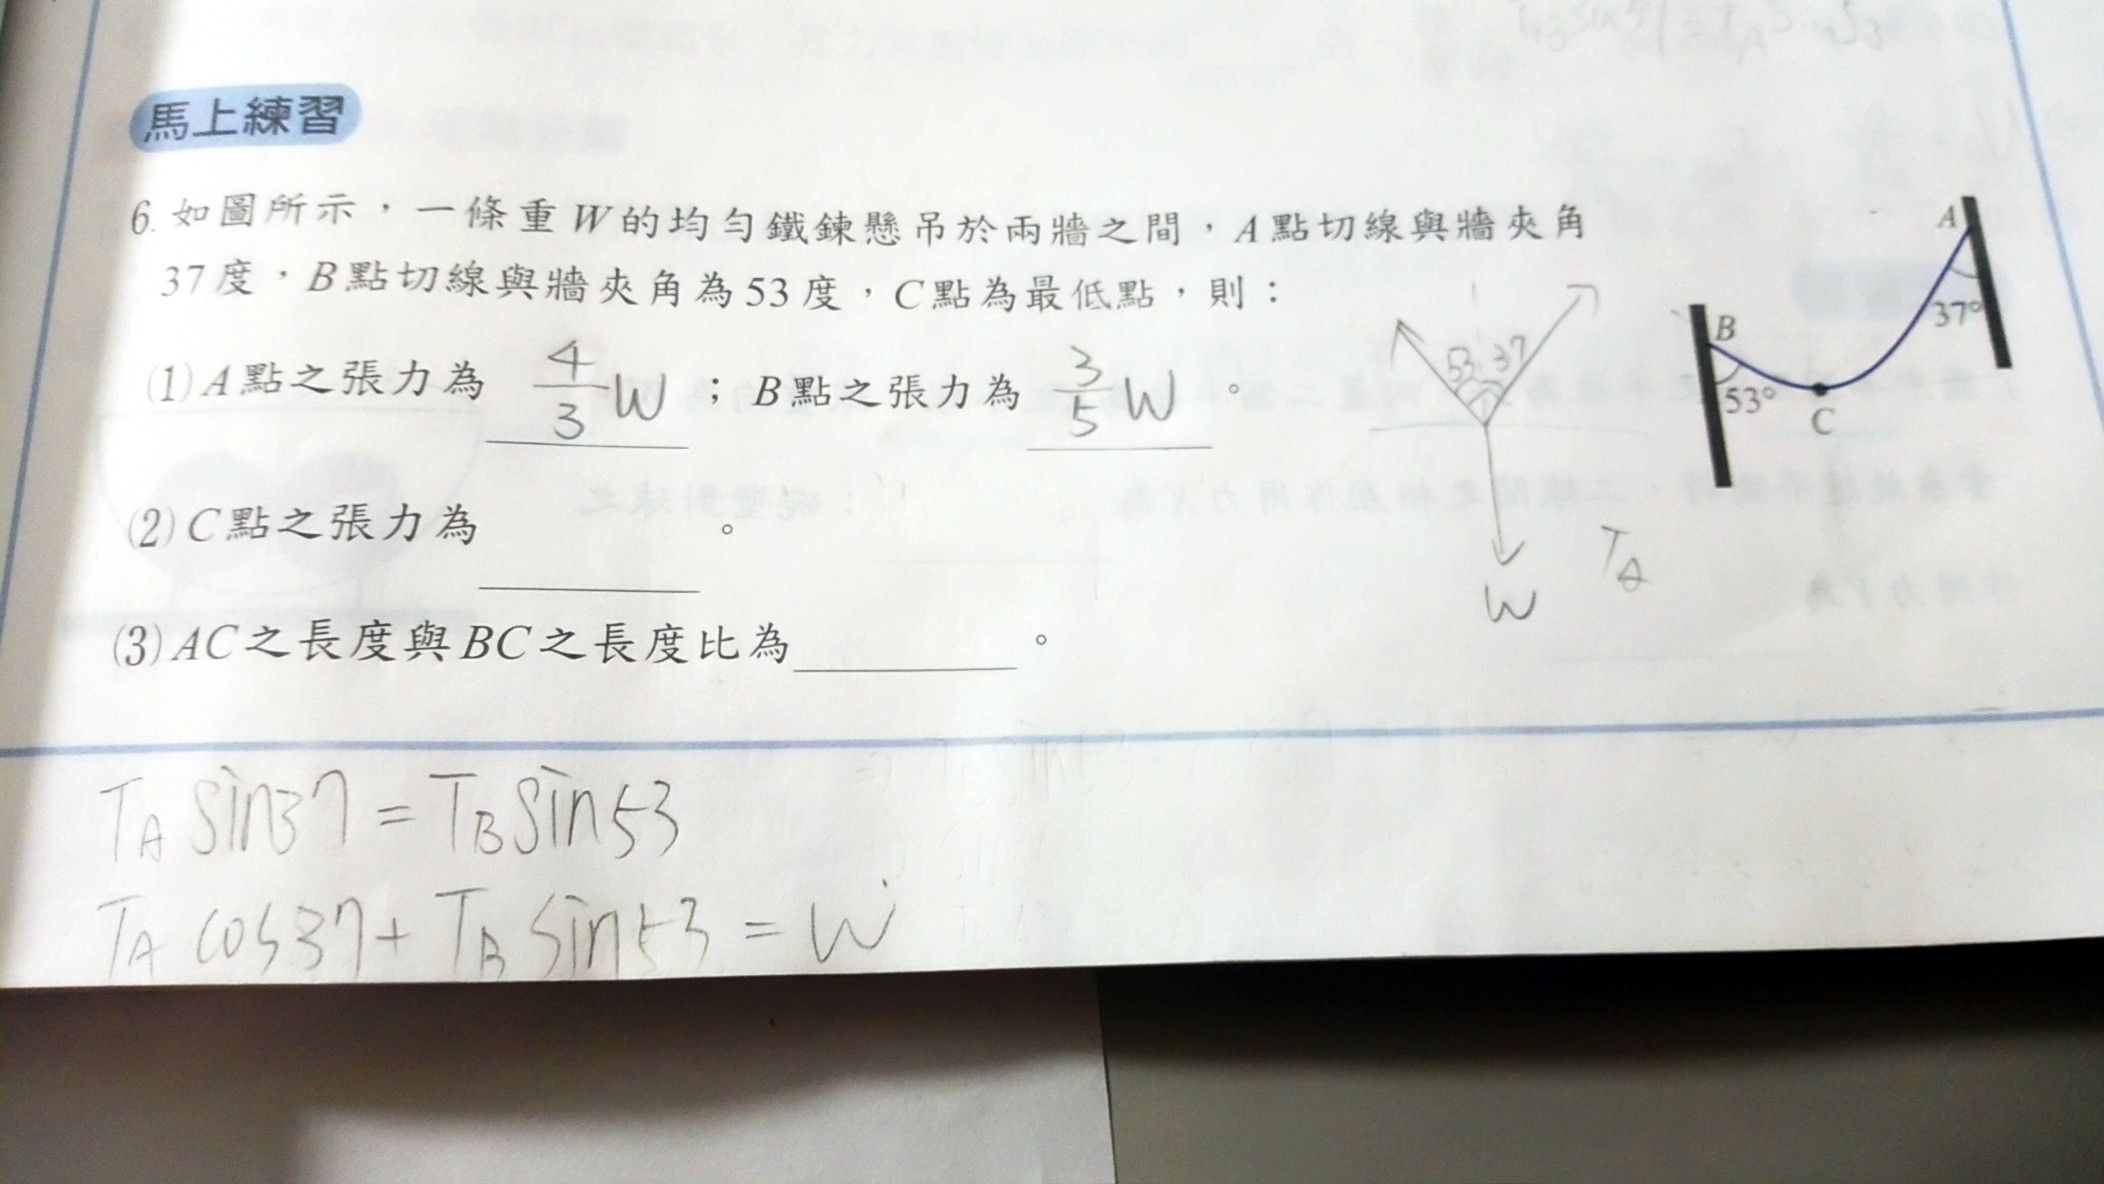 馬上練習
6. 如圖所示，一條重W的均勻鐵鍊懸吊於兩牆之間，A點切線與牆夾角
37度，B點切線與牆夾角為53度，C點為最低點，則：
(1) A點之張力為 4/3 W ；B點之張力為 3/5 W 。
(2) C點之張力為 。
(3) AC之長度與BC之長度比為 。
53 37
W
T_A
A
37°
B
53°
C
T_A sin37 = T_B sin53
T_A cos37 + T_B sin53 = W